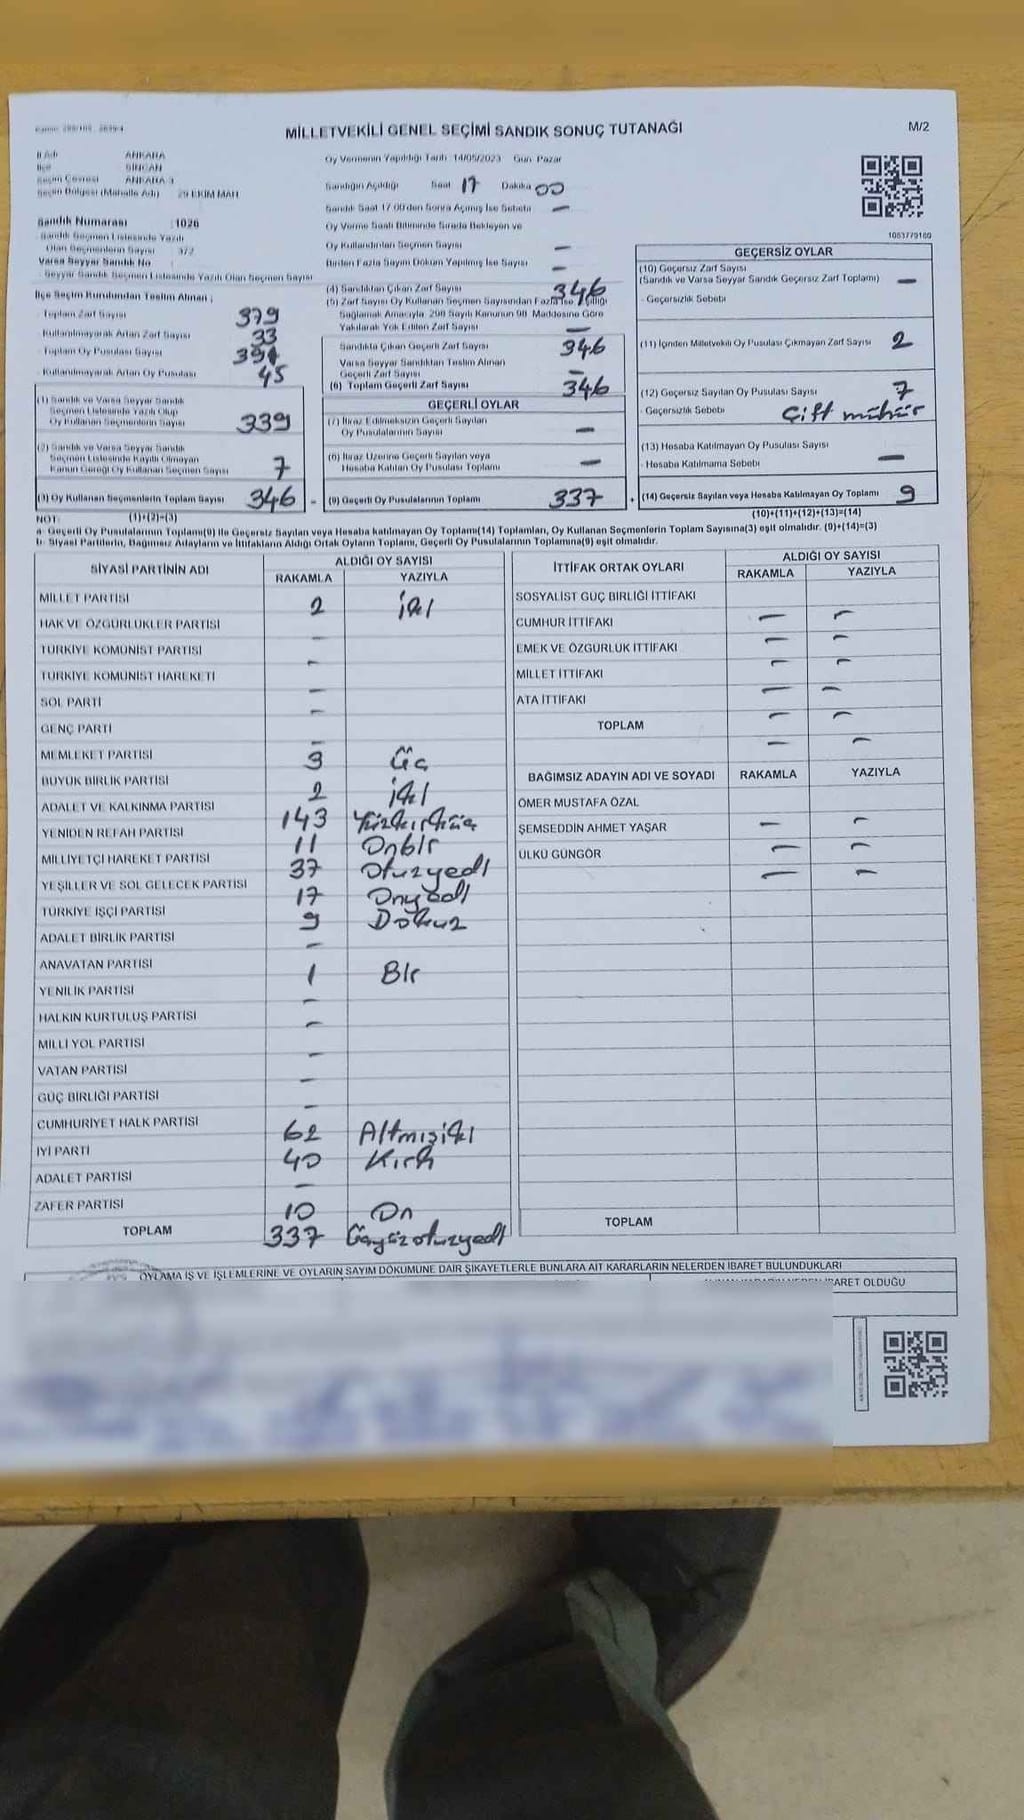 MİLLETVEKİLİ GENEL SEÇİMİ SANDIK SONUÇ TUTANAĞI
M/2
İl Adı ANKARA
İlçe SİNCAN
Seçim Çevresi ANKARA 3
Seçim Bölgesi (Mahalle Adı) 29 EKİM MAH
Oy Vermenin Yapıldığı Tarih : 14/05/2023 Gün: Pazar
Sandığın Açıldığı Saat 17 Dakika 00
Sandık Saat 17:00'den Sonra Açılmış İse Sebebi —
Oy Verme Saati Bitiminde Sırada Bekleyen ve
Oy Kullandırılan Seçmen Sayısı —
Birden Fazla Sayım Döküm Yapılmış İse Sayısı —
1053779160
Sandık Numarası : 1026
Sandık Seçmen Listesinde Yazılı
Olan Seçmenlerin Sayısı : 372
Varsa Seyyar Sandık No :
Seyyar Sandık Seçmen Listesinde Yazılı Olan Seçmen Sayısı
İlçe Seçim Kurulundan Teslim Alınan ;
Toplam Zarf Sayısı 379
Kullanılmayarak Artan Zarf Sayısı 33
Toplam Oy Pusulası Sayısı
Kullanılmayarak Artan Oy Pusulası 45
(1) Sandık ve Varsa Seyyar Sandık
Seçmen Listesinde Yazılı Olup
Oy Kullanan Seçmenlerin Sayısı 339
(2) Sandık ve Varsa Seyyar Sandık
Seçmen Listesinde Kayıtlı Olmayan
Kanun Gereği Oy Kullanan Seçmen Sayısı 7
(3) Oy Kullanan Seçmenlerin Toplam Sayısı 346
(4) Sandıktan Çıkan Zarf Sayısı 346
(5) Zarf Sayısı Oy Kullanan Seçmen Sayısından Fazla İse, Eşitliği
Sağlamak Amacıyla 298 Sayılı Kanunun 98. Maddesine Göre
Yakılarak Yok Edilen Zarf Sayısı —
Sandıkta Çıkan Geçerli Zarf Sayısı 346
Varsa Seyyar Sandıktan Teslim Alınan
Geçerli Zarf Sayısı —
(6) Toplam Geçerli Zarf Sayısı 346
GEÇERLİ OYLAR
(7) İtiraz Edilmeksizin Geçerli Sayılan
Oy Pusulalarının Sayısı —
(8) İtiraz Üzerine Geçerli Sayılan veya
Hesaba Katılan Oy Pusulası Toplamı —
(9) Geçerli Oy Pusulalarının Toplamı 337
GEÇERSİZ OYLAR
(10) Geçersiz Zarf Sayısı
(Sandık ve Varsa Seyyar Sandık Geçersiz Zarf Toplamı) —
Geçersizlik Sebebi
(11) İçinden Milletvekili Oy Pusulası Çıkmayan Zarf Sayısı 2
(12) Geçersiz Sayılan Oy Pusulası Sayısı 7
Geçersizlik Sebebi Çift mühür
(13) Hesaba Katılmayan Oy Pusulası Sayısı —
Hesaba Katılmama Sebebi
(14) Geçersiz Sayılan veya Hesaba Katılmayan Oy Toplamı 9
NOT: (1)+(2)=(3) (10)+(11)+(12)+(13)=(14)
a- Geçerli Oy Pusulalarının Toplamı(9) ile Geçersiz Sayılan veya Hesaba katılmayan Oy Toplamı(14) Toplamları, Oy Kullanan Seçmenlerin Toplam Sayısına(3) eşit olmalıdır. (9)+(14)=(3)
b- Siyasi Partilerin, Bağımsız Adayların ve İttifakların Aldığı Ortak Oyların Toplamı, Geçerli Oy Pusulalarının Toplamına(9) eşit olmalıdır.
SİYASİ PARTİNİN ADI ALDIĞI OY SAYISI
RAKAMLA YAZIYLA
MİLLET PARTİSİ 2 iki
HAK VE ÖZGÜRLÜKLER PARTİSİ —
TÜRKİYE KOMÜNİST PARTİSİ —
TÜRKİYE KOMÜNİST HAREKETİ —
SOL PARTİ —
GENÇ PARTİ —
MEMLEKET PARTİSİ 3 Üç
BÜYÜK BİRLİK PARTİSİ 2 iki
ADALET VE KALKINMA PARTİSİ 143 Yüzkırküç
YENİDEN REFAH PARTİSİ 11 Onbir
MİLLİYETÇİ HAREKET PARTİSİ 37 Otuzyedi
YEŞİLLER VE SOL GELECEK PARTİSİ 17 Onyedi
TÜRKİYE İŞÇİ PARTİSİ 9 Dokuz
ADALET BİRLİK PARTİSİ —
ANAVATAN PARTİSİ 1 Bir
YENİLİK PARTİSİ —
HALKIN KURTULUŞ PARTİSİ —
MİLLİ YOL PARTİSİ —
VATAN PARTİSİ —
GÜÇ BİRLİĞİ PARTİSİ —
CUMHURİYET HALK PARTİSİ 62 Altmışiki
İYİ PARTİ 40 Kırk
ADALET PARTİSİ —
ZAFER PARTİSİ 10 On
TOPLAM 337 Üçyüzotuzyedi
İTTİFAK ORTAK OYLARI ALDIĞI OY SAYISI
RAKAMLA YAZIYLA
SOSYALİST GÜÇ BİRLİĞİ İTTİFAKI — —
CUMHUR İTTİFAKI — —
EMEK VE ÖZGÜRLÜK İTTİFAKI — —
MİLLET İTTİFAKI — —
ATA İTTİFAKI — —
TOPLAM — —
BAĞIMSIZ ADAYIN ADI VE SOYADI RAKAMLA YAZIYLA
ÖMER MUSTAFA ÖZAL — —
ŞEMSEDDİN AHMET YAŞAR — —
ÜLKÜ GÜNGÖR — —
TOPLAM
OYLAMA İŞ VE İŞLEMLERİNE VE OYLARIN SAYIM DÖKÜMÜNE DAİR ŞİKAYETLERLE BUNLARA AİT KARARLARIN NELERDEN İBARET BULUNDUKLARI
İBARET OLDUĞU